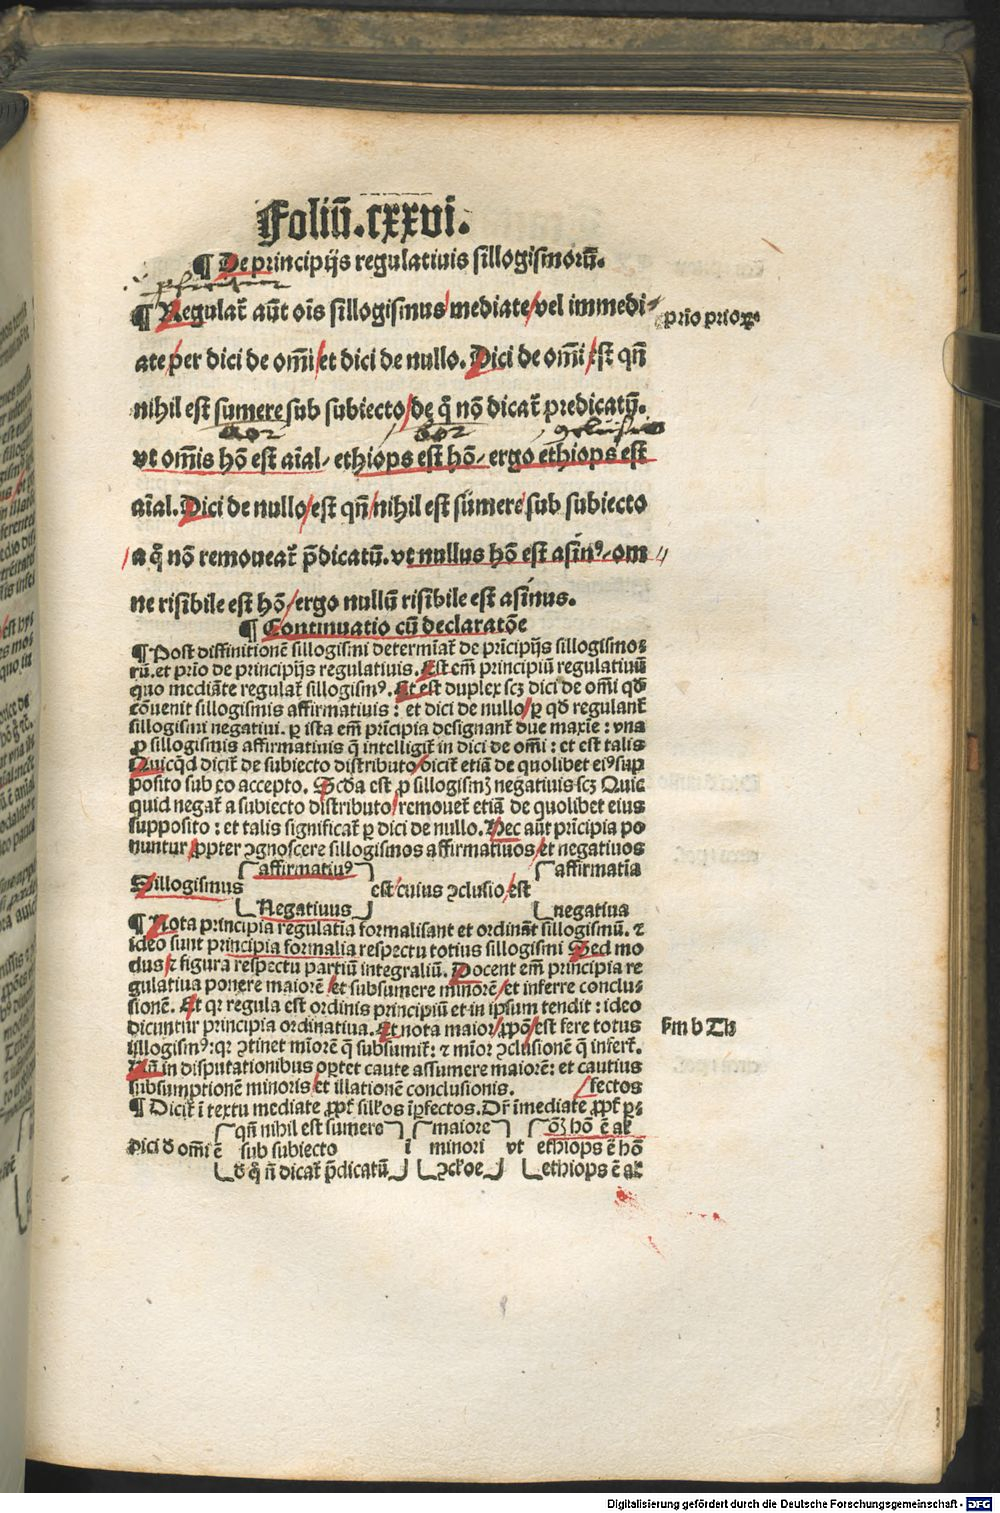 Foliū.cxxvi.
¶ De principijs regulatiuis sillogismorū.
¶ Regulat̄ aūt oīs sillogismus mediate vel immedi-
prio prioꝝ
ate per dici de om̄i et dici de nullo. Dici de om̄i est qn̄
nihil est sumere sub subiecto/ de q̊ nō dicat̄ predicatū.
maior minor conclusio
vt om̄is hō est aīal, ethiops est hō, ergo ethiops est
aīal. Dici de nullo est qn̄ nihil est sumere sub subiecto
a q̊ nō remoueat̄ p̄dicatū. vt nullus hō est asinꝰ, om
ne risibile est hō ergo nullū risibile est asinus.
¶ Continuatio cū declaratōe
¶ Post diffinitionē sillogismi determīat̄ de prīcipijs sillogismo-
rū. et prio de principijs regulatiuis. Est em̄ principiū regulatiuū
quo mediāte regulat̄ sillogismꝰ. Et est duplex scꝫ dici de om̄i qd̄
cōuenit sillogismis affirmatiuis: et dici de nullo ꝑ qd̄ regulant̄
sillogismi negatiui. ꝑ ista em̄ prīcipia designant̄ due maxīe: vna
ꝓ sillogismis affirmatiuis q̄ intelligit̄ in dici de om̄i: et est talis
Quicqd̄ dicit̄ de subiecto distributo/ dicit̄ etiā de quolibet eiꝰ sup
posito sub eo accepto. Scd̄a est ꝓ sillogismꝫ negatiuis scꝫ Quic
quid negat̄ a subiecto distributo remouet̄ etiā de quolibet eius
supposito: et talis significat̄ ꝑ dici de nullo. Hec aūt prīcipia po
nuntur ꝓpter ꝯgnoscere sillogismos affirmatiuos et negatiuos
affirmatiuꝰ affirmatīa
Sillogismus est cuius ꝯclusio est
Negatiuus negatiua
¶ Nota principia regulatīa formalisant et ordināt sillogismū. ⁊
ideo sunt principia formalia respectu totius sillogismi Sed mo
dus ⁊ figura respectu partiū integraliū. Docent em̄ principia re
gulatiua ponere maiorē et subsumere minorē et inferre conclu-
sionē. Et qꝛ regula est ordinis principiū et in ipsum tendit: ideo
dicuntur principia ordinatiua. Et nota maior ꝓpō est fere totus
fm b Th
sillogismꝰ: qꝛ ꝯtinet mīorē q̄ subsumit̄: ⁊ mīor ꝯclusionē q̄ infert̄.
Nā in disputationibus oꝑtet caute assumere maiorē: et cautius
subsumptionē minoris et illationē conclusionis. fectos
¶ Dicit̄ ī textu mediate ꝓpt̄ sillꝰos īꝑfectos. Dr̄ īmediate ꝓpt̄ ꝑ-
qn̄ nihil est sumere maiore oīs hō ē aĺ
Dici d̄ om̄i ē sub subiecto ī minori vt ethiops ē hō
d̄ q̊ n̄ dicat̄ p̄dicatū ꝯcĺoe ethiops ē aĺ
Digitalisierung gefördert durch die Deutsche Forschungsgemeinschaft - DFG